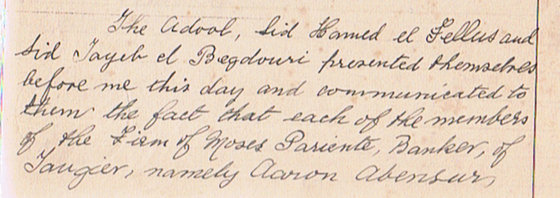 The Adool, Sid Hamed el Fellus and
Sid Tayeb el Begdouri presented themselves
before me this day and communicated to
them the fact that each of the members
of the Firm of Moses Pariente, Banker, of
Tangier, namely Aaron Abensur,